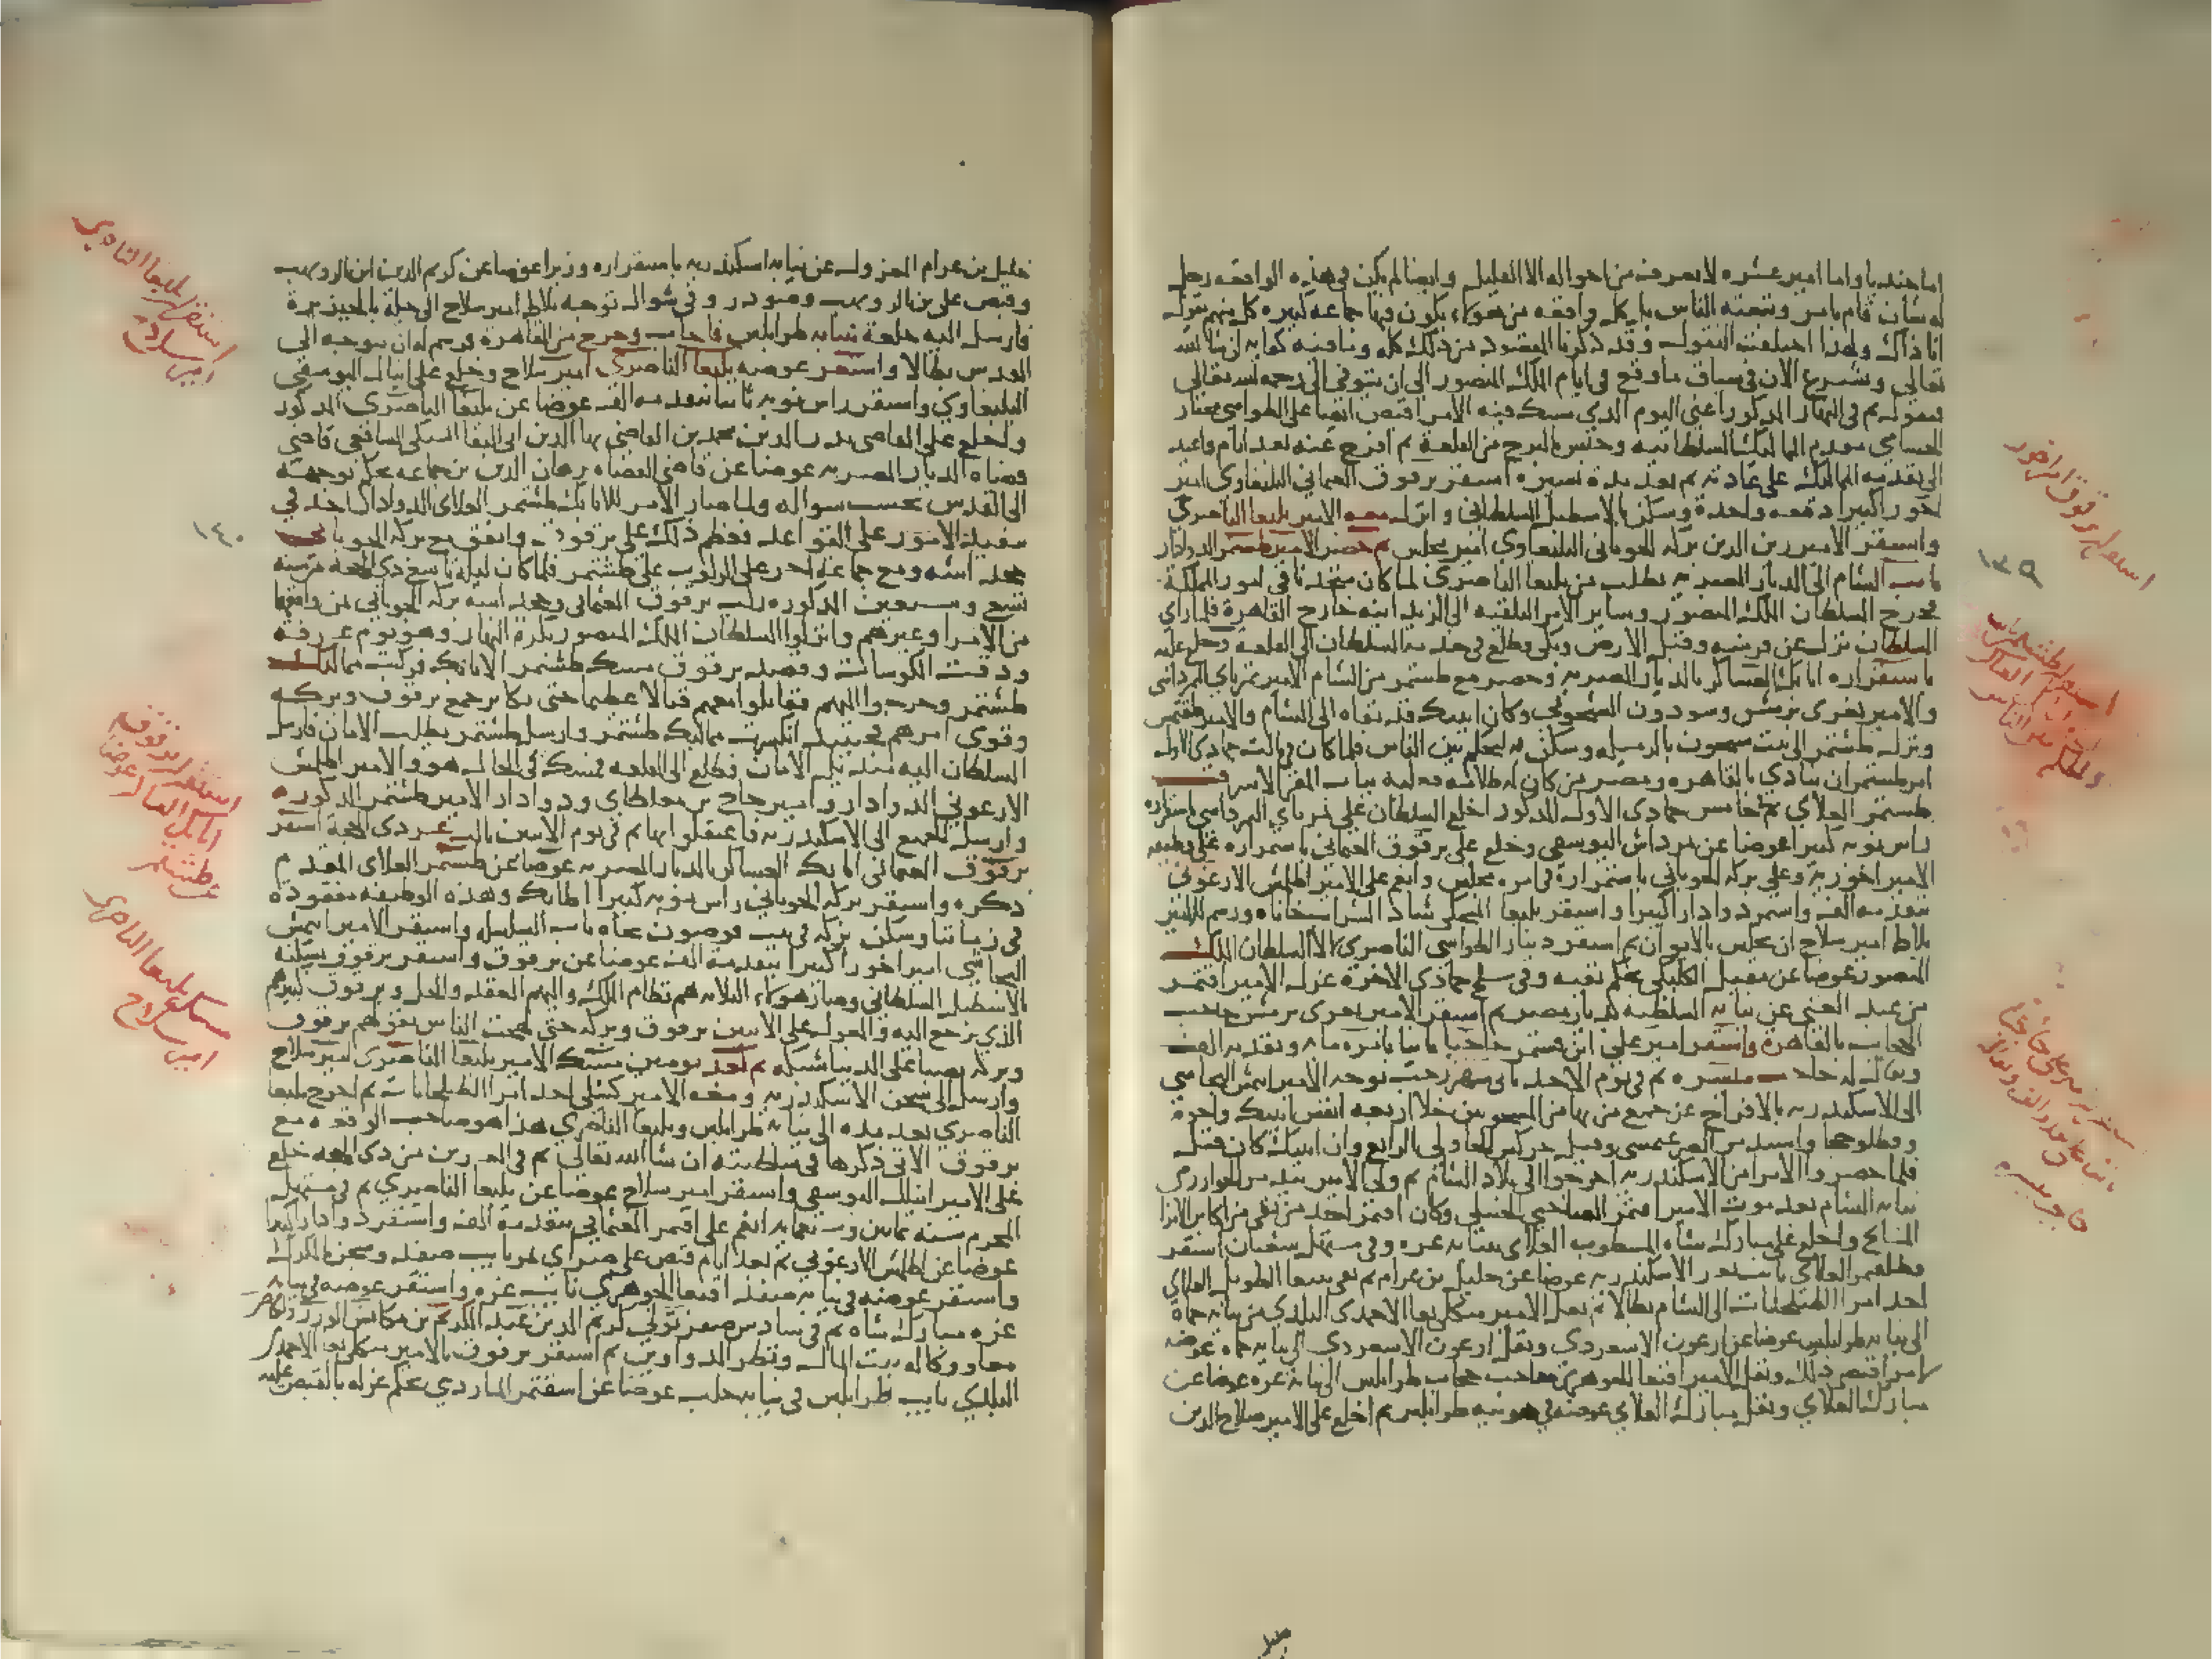 اما جنديا واما امير عشره لا يعرف من احواله الا القليل وايضا لم يكن في هذه الواقعه رجل
له شان قام بامر وتبعته الناس بل كل واقعه من هولاء يكون فيها جماعه كبيره كل منهم يقول
انا ذاك ولهذا اختلفت النقول وقد ذكرنا المقصود من ذلك كله وما فيه كفايه ان شا الله
تعالى ونشرع الان في سياق ما وقع في ايام الملك المنصور الى ان يتوفى الى رحمه الله تعالى
فنقول ثم في النهار المذكور اعني اليوم الذي مسك فيه الامرا قبض ايضا على الطواشي مختار
الحسامي مقدم المماليك السلطانيه وحبس بالبرج من القلعه ثم افرج عنه بعد ايام واعيد
الى تقدمه المماليك على عادته ثم بعد مدة يسيره استقر برقوق العثماني اليلبغاوي امير
اخور كبيرا دفعه واحدة وسكن بالاسطبل السلطاني وانزل معه الامير يلبغا الناصري
واستقر الامير زين الدين بركه الجوباني اليلبغاوي امير مجلس ثم حضر الامير طشتمر الدوادار
نايب الشام الى الديار المصريه بطلب من يلبغا الناصري لما كان متحدثا في امور المملكة
فخرج السلطان الملك المنصور وساير الامرا لتلقيه الى الريدانيه خارج القاهرة فلما راى
السلطان نزل عن فرسه وقبل الارض وبكى وطلع في خدمة السلطان الى القلعه وخلع عليه
باستقراره اتابك العساكر بالديار المصريه وحضر مع طشتمر من الشام الامير تمرباي الدمرداشي
والامير تغري برمش وسودون الشيخوني وكان ايبك قد نفاه الى الشام والامير طقتمش
ونزل طشتمر الى بيت شيخون بالرميله وسكن به ليحكم بين الناس فلما كان في ثالث جمادى الاول
امر طشتمر ان ينادي بالقاهره ومصر من كان له ظلامه فعليه بباب المقر الاشرف
طشتمر العلاي ثم خامس جمادى الاول المذكور اخلع السلطان على تمرباي الدمرداشي باستقراره
راس نوبه كبيرا عوضا عن دمرداش اليوسفي وخلع على برقوق العثماني باستمراره على وظيفه
الامير اخوريه وعلى بركه الجوباني باستمراره في امره مجلس وانعم على الامير اطلمش الارغوني
بتقدمه الف واستمر دوادارا كبيرا واستقر يلبغا المنجكي شاد الشراب خاناه ورسم للامير
بلاط امير سلاح ان يجلس بالايوان ثم استقر دينار الطواشي الناصري لالا السلطان الملك
المنصور عوضا عن مقبل الكلبكي بحكم نفيه وفي سلخ جمادى الاخرة عزل الامير اقتمر
من عبد الغني عن نيابه السلطنه بديار مصر ثم استقر الامير تغري برمش حاجب
الحجاب بالقاهرة واستقر امير علي ابن قشتمر حاجبا ثانيا بامره مايه وتقدمه الف
ويقال له حاجب ميسره ثم في يوم الاحد ثاني شهر رجب توجه الامير ايتمش البجاسي
الى الاسكندريه بالافراج عن جميع من بها من المسجونين خلا اربعه انفس ايبك واخوة
فلما حضروا الامرا من الاسكندريه اخرجوا الى بلاد الشام ثم ولى الامير بيدمر الخوارزمي
نيابه الشام بعد موت الامير اقتمر الصاحبي الحنبلي وكان اقتمر احد من بقي من اكابر الامرا
المشايخ واخلع على مبارك شاه المشطوب العلاي بنيابه غزه وفي مستهل شعبان استقر
نايب ثغر الاسكندريه عوضا عن خليل بن عرام ثم نفى بيبغا الطويل العلاي
احد امرا الطبلخانات الى الشام بطالا ثم نقل الامير منكلي بغا الاحمدي البلدي من نيابه حماة
الى نيابه طرابلس عوضا عن ارغون الاسعردي ونقل ارغون الاسعردي الى نيابه حماه عوضه
لامر اقتضى ذلك ونقل الامير اقبغا الجوهري حاجب حجاب طرابلس الى نيابه غزه عوضا عن
مبارك العلاي ونقل مبارك العلاي عوضه في حجوبيه طرابلس ثم اخلع على الامير صلاح الدين
استقرار برقوق امير اخور
١٣٩
خليل بن عرام المعزول عن نيابه اسكندريه باستقراره وزيرا عوضا عن كريم الدين ابن الرويهب
وقبض على بن الرويهب وصودر وفي شوال توجه بلاط امير سلاح الى خيله بالجيزة
فارسل اليه خلعة نيابه طرابلس فاجاب وخرج من القاهرة فرسم له ان يتوجه الى
القدس بطالا واستقر عوضه يلبغا الناصري امير سلاح وخلع على اينال اليوسفي
اليلبغاوي واستقر راس نوبه ثانيا بتقدمه الف عوضا عن يلبغا الناصري المذكور
واخلع على القاضي بدر الدين محمد بن القاضي بها الدين ابي البقا السبكي الشافعي قاضي
قضاه الديار المصريه عوضا عن قاضي القضاه برهان الدين بن جماعه بحكم توجهه
الى القدس بحسب سواله ولما صار الامر للاتابك طشتمر العلاي الدوادار اخذ في
تنفيذ الامور على القواعد فعظم ذلك على برقوق واتفق مع بركه الجوباني
خجداشه ومع جماعه اخر على الركوب على طشتمر فلما كان ليله تاسع ذي الحجه من سنه
تسع وسبعين المذكوره ركب برقوق العثماني وخجداشه بركه الجوباني بمن وافقهما
من الامرا وغيرهم وانزلوا السلطان الملك المنصور بكرة النهار وهو يوم عرفه
ودقت الكوسات وقصد برقوق مسك طشتمر الاتابك فركبت مماليك
طشتمر وخرجوا اليهم فقاتلوا معهم قتالا عظيما حتى تكاثر جمع برقوق وبركه
وقوي امرهم فحينئذ انكسرت مماليك طشتمر وارسل طشتمر يطلب الامان فارسل
السلطان اليه منديل الامان فطلع الى القلعه فمسك في الحال هو والامير اطلمش
الارغوني الدوادار وامير حاج بن مغلطاي ودوادار الامير طشتمر المذكور
وارسل الجميع الى الاسكندريه فاعتقلوا بها ثم في يوم الاثنين ثالث عشر ذي الحجة استقر
برقوق العثماني اتابك العساكر بالديار المصريه عوضا عن طشتمر العلاي المقدم
ذكره واستقر بركه الجوباني راس نوبه كبيرا اطابك وهذه الوظيفه مفقوده
في زماننا وسكن بركه في بيت قوصون تجاه باب السلسله واستقر الامير ايتمش
البجاسي امير اخورا كبيرا بتقدمه الف عوضا عن برقوق واستقر برقوق بسكنه
بالاسطبل السلطاني وصار هولاء الثلاثه هم نظام الملك واليهم العقد والحل وبرقوق كبيرهم
الذي يرجع اليه والمعول على الاثنين برقوق وبركه حتى لهجت الناس بقولهم برقوق
وبركه نصبا على الدنيا شبكه ثم بعد يومين مسك الامير يلبغا الناصري امير سلاح
وارسل الى سجن الاسكندريه ومعه الامير كشلي احد امرا الطبلخانات ثم اخرج يلبغا
الناصري بعد مده الى نيابه طرابلس ويلبغا الناصري هذا هو صاحب الوقعه مع
برقوق الاتي ذكرها في سلطنته ان شا الله تعالى ثم في العشرين من ذي الحجه خلع
على الامير اينال اليوسفي واستقر امير سلاح عوضا عن يلبغا الناصري ثم في مستهل
المحرم سنه ثمانين وسبعمايه انعم على اقتمر العثماني بتقدمة الف واستقر دوادارا كبيرا
عوضا عن اطلمش الارغوني ثم بعد ايام قبض على صراي تمر نايب صفد وسجن بالكرك
واستقر عوضه في نيابه صفد اقبغا الجوهري نايب غزه واستقر عوضه في نيابه
غزه مبارك شاه ثم في سادس صفر تولى كريم الدين عبد الكريم بن مكانس الوزر والخاص
معا ووكاله بيت المال ونظر الدواوين ثم استقر برقوق بالامير منكلي بغا الاحمدي
البلدي نايب طرابلس في نيابه حلب عوضا عن اشقتمر المارديني بحكم عزله بالقبض عليه
استقرار يلبغا الناصري
امير سلاح
١٤٠
استقرار برقوق
اتابك العساكر عوضا
عن طشتمر
مسك يلبغا الناصري
امير سلاح